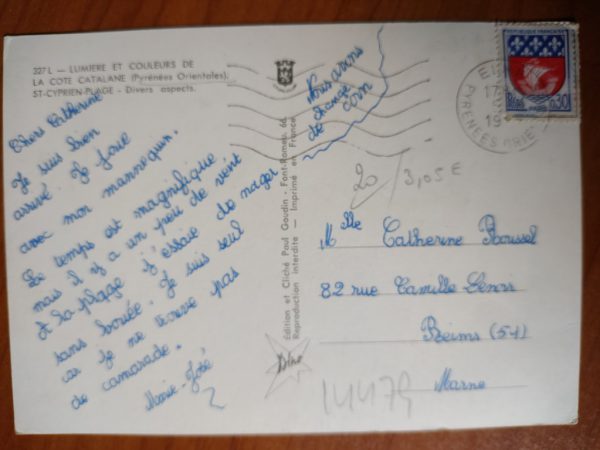 327 L - LUMIERE ET COULEURS DE
LA COTE CATALANE (Pyrénées Orientales)
ST-CYPRIEN-PLAGE - Divers aspects.
Chere Catherine
Je suis bien
arrivé. Je joue
avec mon mannequin.
Le temps est magnifique
mais il y a un peu de vent
et la plage j'essaie de nager
sans bouée. Je suis seul
car je ne trouve pas
de camarade.
Marie-José
Nous avons
changé
de
coin
Edition et Cliché Paul Gaudin - Font-Romeu 66
Reproduction interdite - Imprimé en France
REPUBLIQUE FRANCAISE
0,30
17
19
PYRENEES ORIE
20
3,05 €
Mlle Catherine Roussel
82 rue Camille Lenoir
Reims (51)
Marne
14479
2